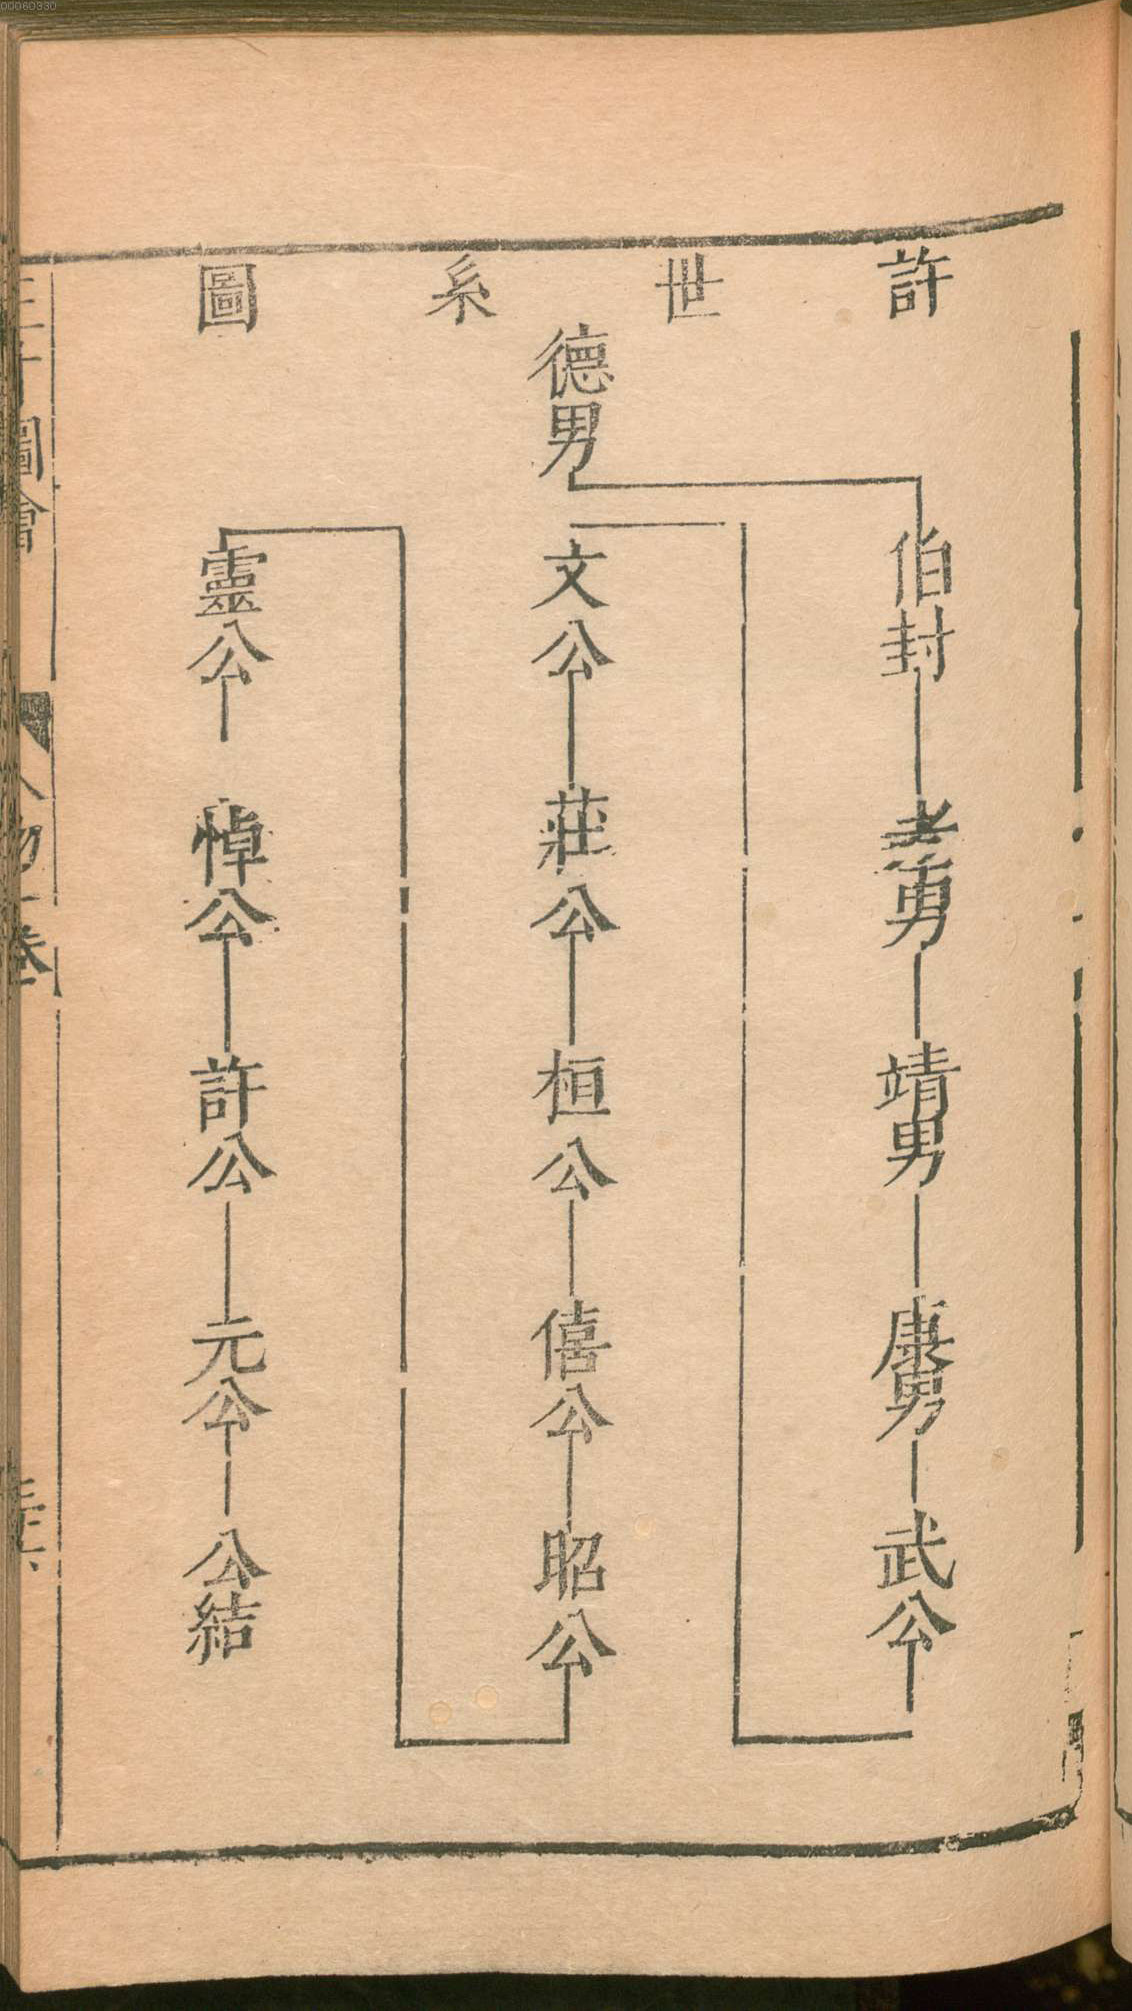 00060330
許世系圖
德男
伯封
孝男
靖男
康男
武公
文公
莊公
桓公
僖公
昭公
靈公
悼公
許公
元公
公結
圖會
人物一卷